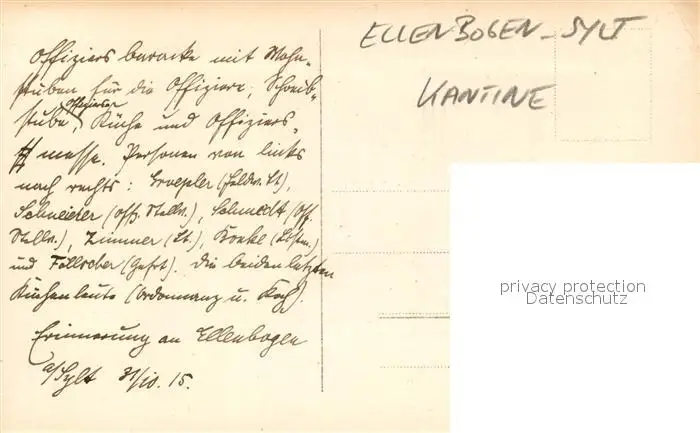 Offiziers baracke mit Wohn-
stuben für die Offiziere, Schreib-
stube, Offiziers Küche und Offiziers-
messe. Personen von links
nach rechts: (Feldw. Lt),
Schneider (Off. Stellv.), Schmidt (Off.
Stellv.), Zimmer (Lt.),
und (Gefrt). Die beiden letzten
Küchenleute (Ordonnanz u. Koch).
Erinnerung an Ellenbogen
a/Sylt 31/10. 15.
ELLENBOGEN - SYLT
KANTINE
privacy protection
Datenschutz